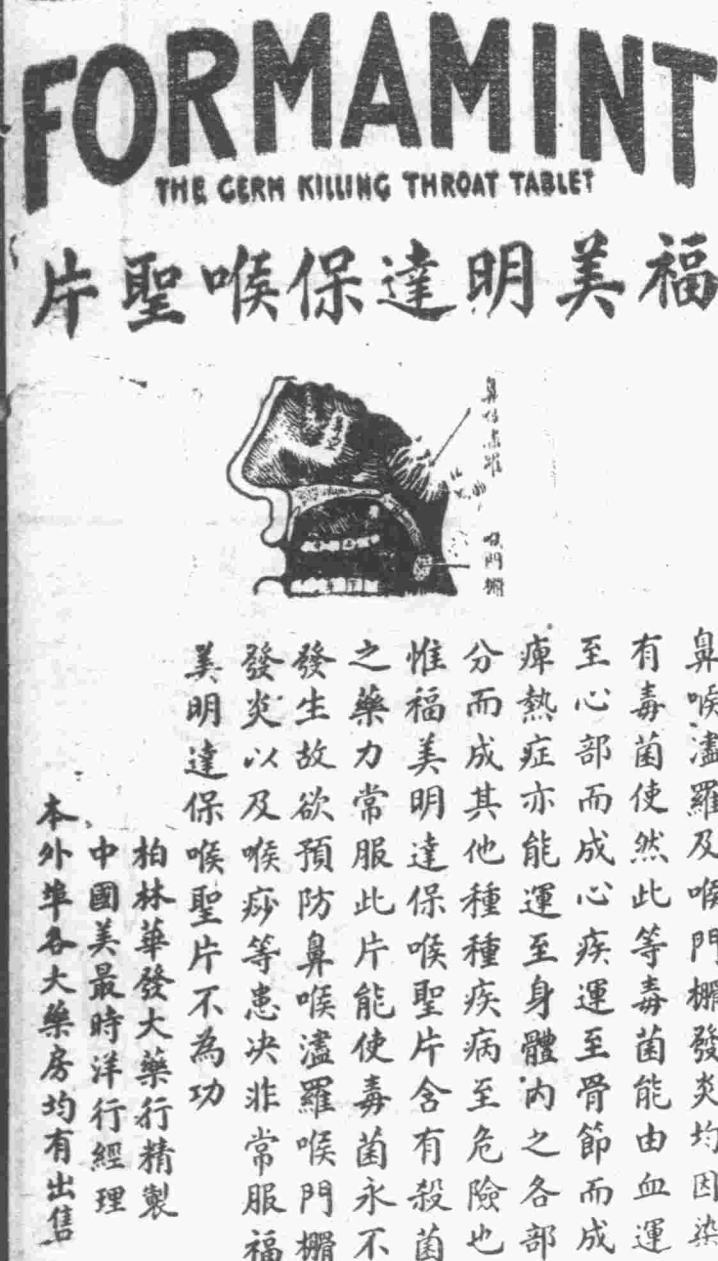 FORMAMINT
THE GERM KILLING THROAT TABLET
福美明達保喉聖片
喉門棚
鼻喉濫羅及喉門棚發炎均因染
有毒菌使然此等毒菌能由血運
至心部而成心疾運至骨節而成
痺熱症亦能運至身體內之各部
分而成其他種種疾病至危險也
惟福美明達保喉聖片含有殺菌
之藥力常服此片能使毒菌永不
發生故欲預防鼻喉濫羅喉門棚
發炎以及喉痧等患决非常服福
美明達保喉聖片不為功
柏林華發大藥行精製
中國美最時洋行經理
本外埠各大藥房均有出售